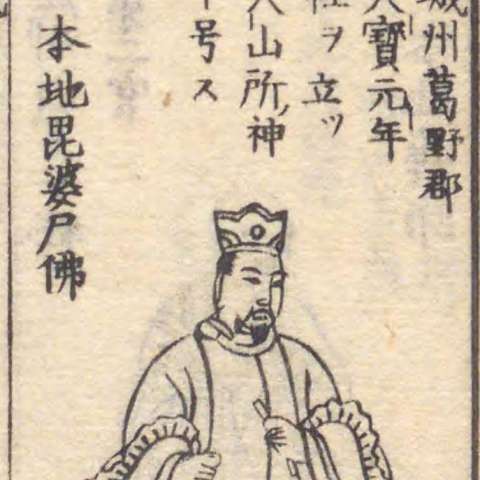 城州葛野郡
大寶元年
社ヲ立ツ
大山所ノ神
号ス
本地毘婆尸佛